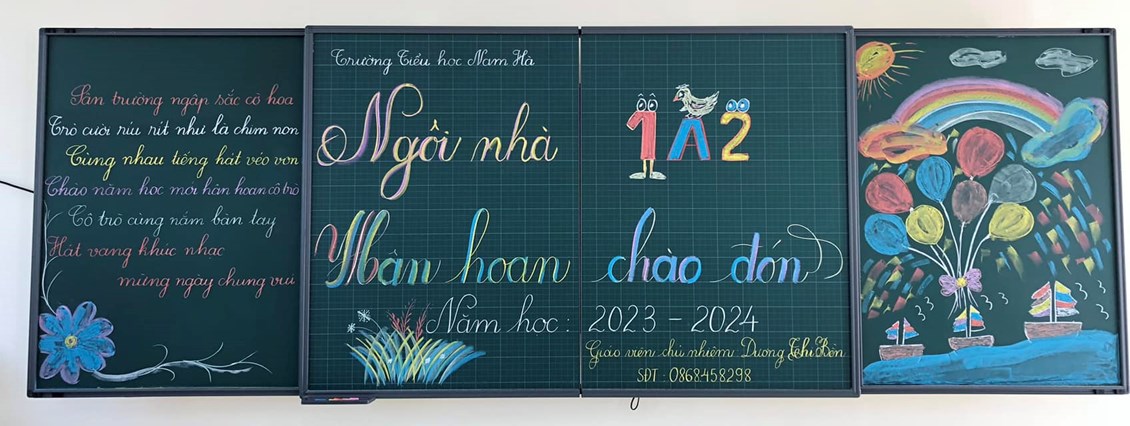 Sân trường ngập sắc cờ hoa
Trò cười ríu rít như là chim non
Cùng nhau tiếng hát véo von
Chào năm học mới hân hoan cô trò
Cô trò cùng nắm bàn tay
Hát vang khúc nhạc
mừng ngày chung vui
Trường Tiểu học Nam Hà
Ngôi nhà 1A2
Hân hoan chào đón
Năm học: 2023 - 2024
Giáo viên chủ nhiệm Dương Thị
SĐT: 0868458298